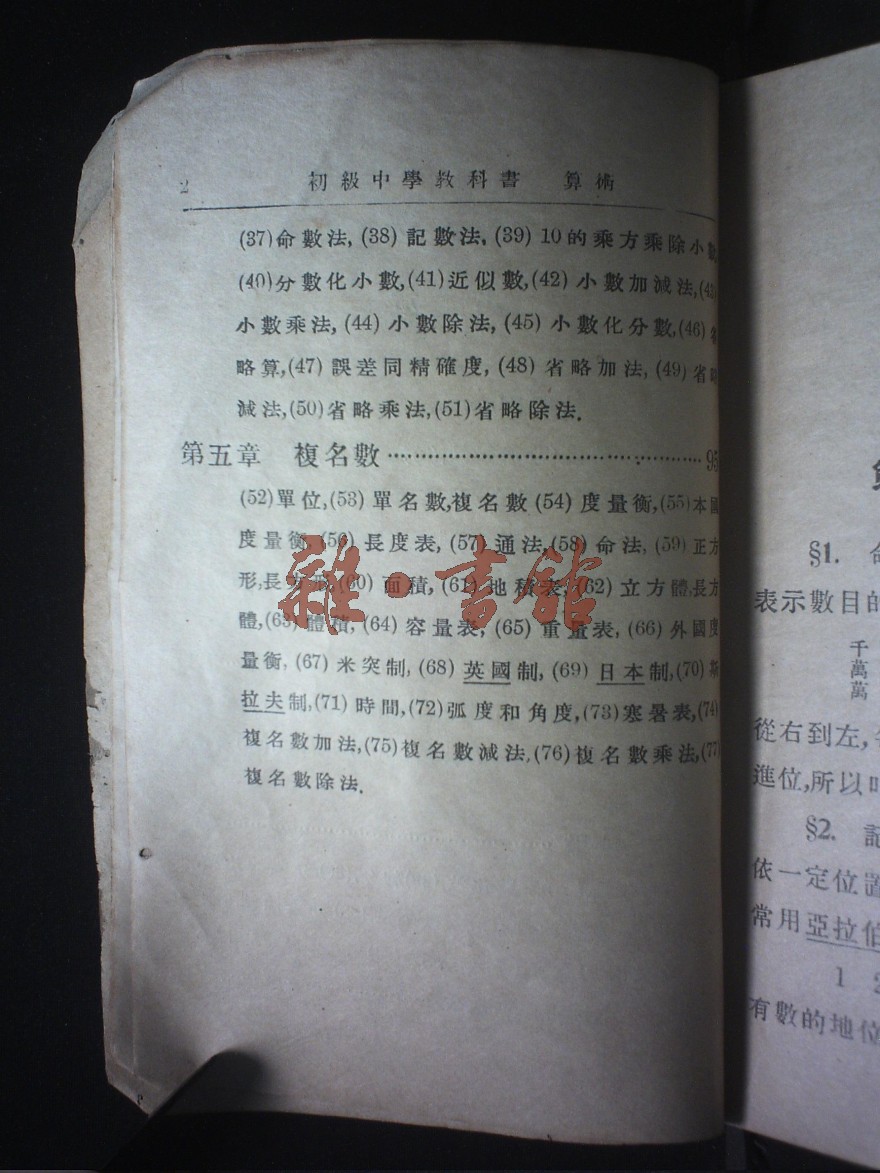 2 初級中學教科書 算術
(37)命數法, (38) 記數法, (39) 10的乘方乘除小數
(40)分數化小數,(41)近似數,(42) 小數加減法,(43)
小數乘法, (44) 小數除法, (45) 小數化分數,(46) 省
略算,(47) 誤差同精確度, (48) 省略加法, (49) 省略
減法,(50)省略乘法,(51)省略除法.
第五章 複名數 95
(52)單位,(53) 單名數,複名數 (54) 度量衡,(55)本國
度量衡, (56) 長度表, (57) 通法,(58) 命法, (59) 正方
形,長方形,(60) 面積, (61) 地積表, (62) 立方體,長方
體,(63) 體積, (64) 容量表, (65) 重量表, (66) 外國度
量衡, (67) 米突制, (68) 英國制, (69) 日本制,(70) 斯
拉夫制,(71) 時間,(72)弧度和角度,(73)寒暑表,(74)
複名數加法,(75)複名數減法,(76)複名數乘法,(77)
複名數除法.
雜·書館
§1.
表示數目的
千萬萬
從右到左,
進位,所以叫
§2. 記
依一定位置
常用亞拉伯
1 2
有數的地位